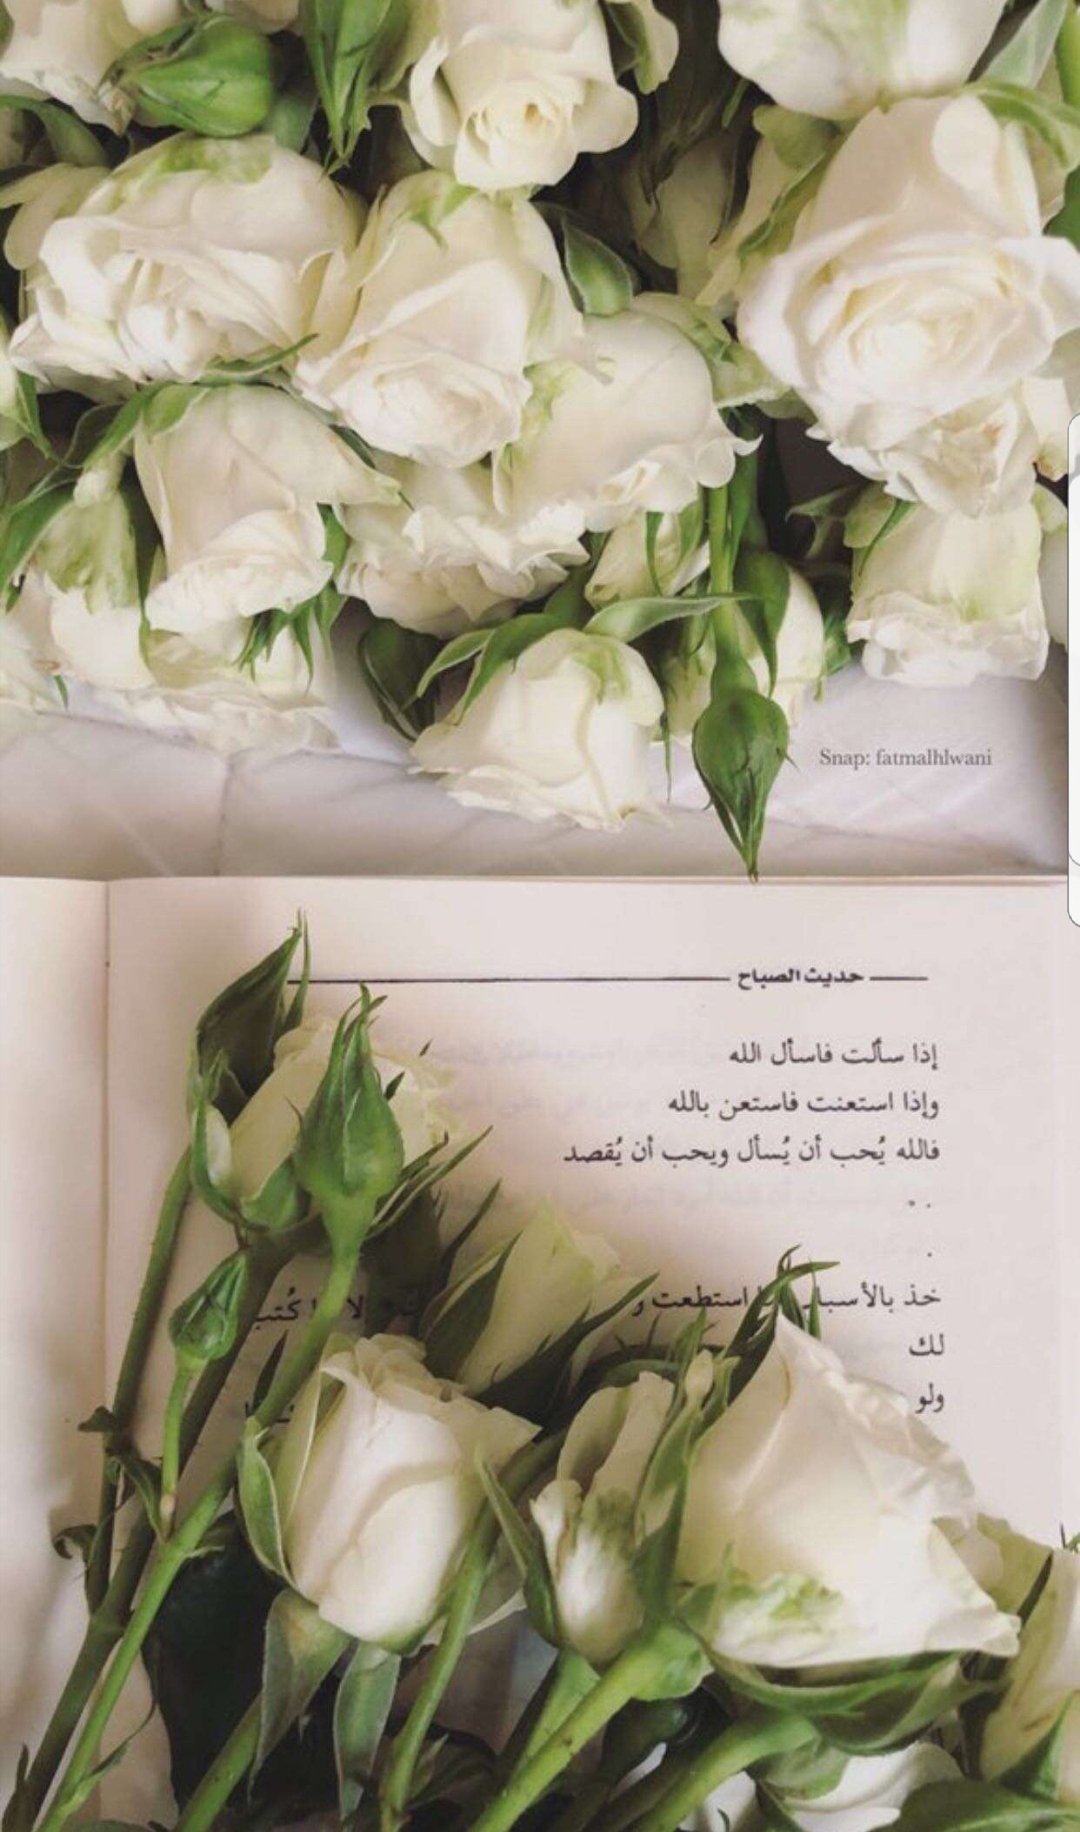 Snap: fatmalhlwani
حديث الصباح
إذا سألت فاسأل الله
وإذا استعنت فاستعن بالله
فالله يُحب أن يُسأل ويحب أن يُقصد
. .
.
خذ استطعت كُتب
لك
ولو